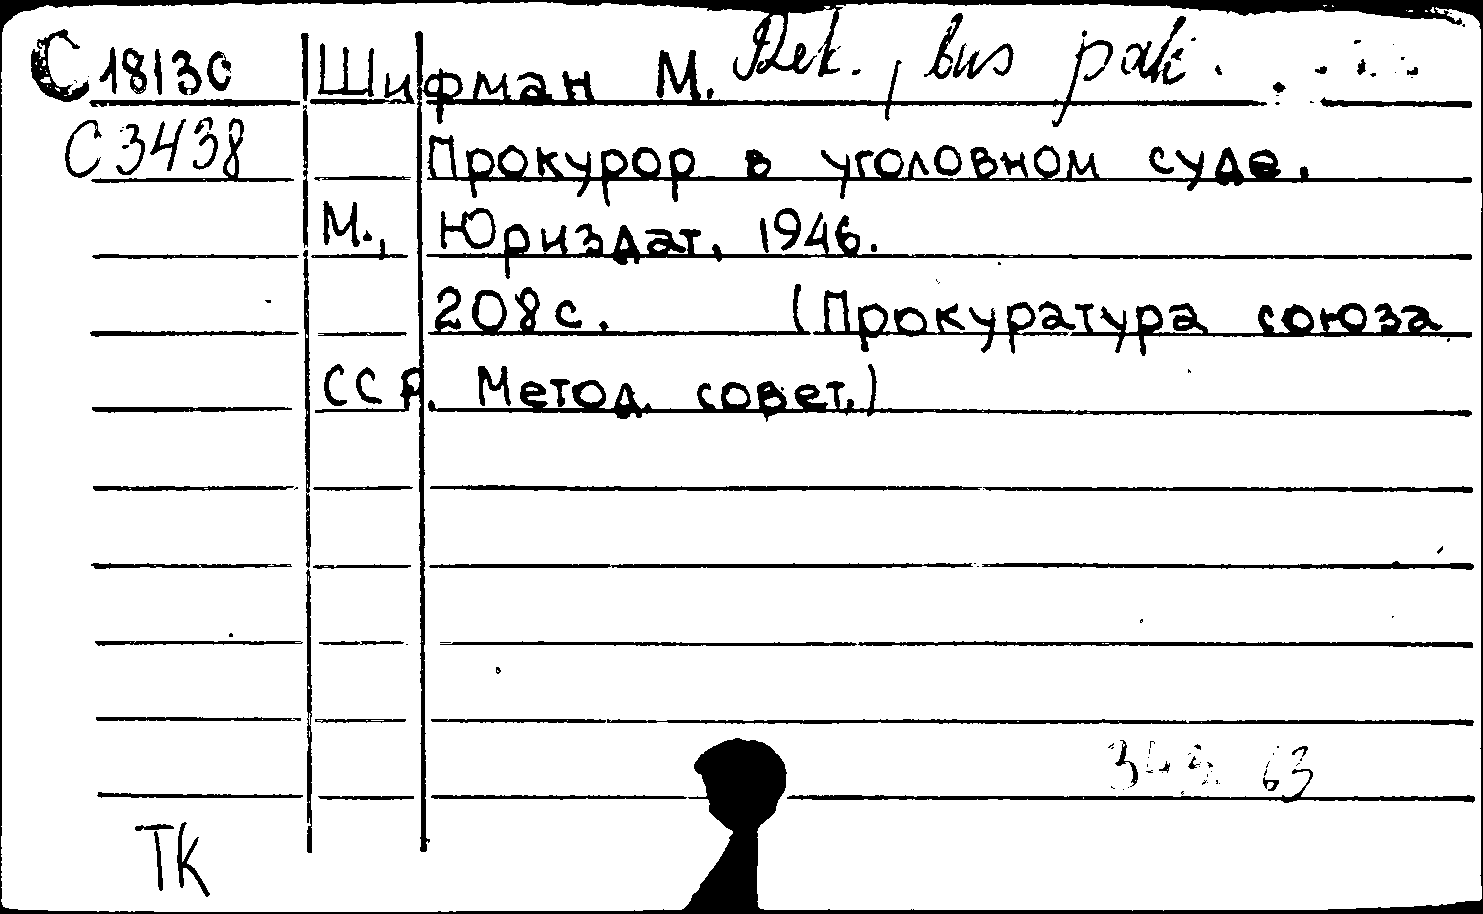 С18130 Шифман М. Rek., bus pak.
С3438 Прокурор в уголовном суде.
М., Юриздат, 1946.
208с. (Прокуратура союза
ССР. Метод. совет.)
343. 63
ТК